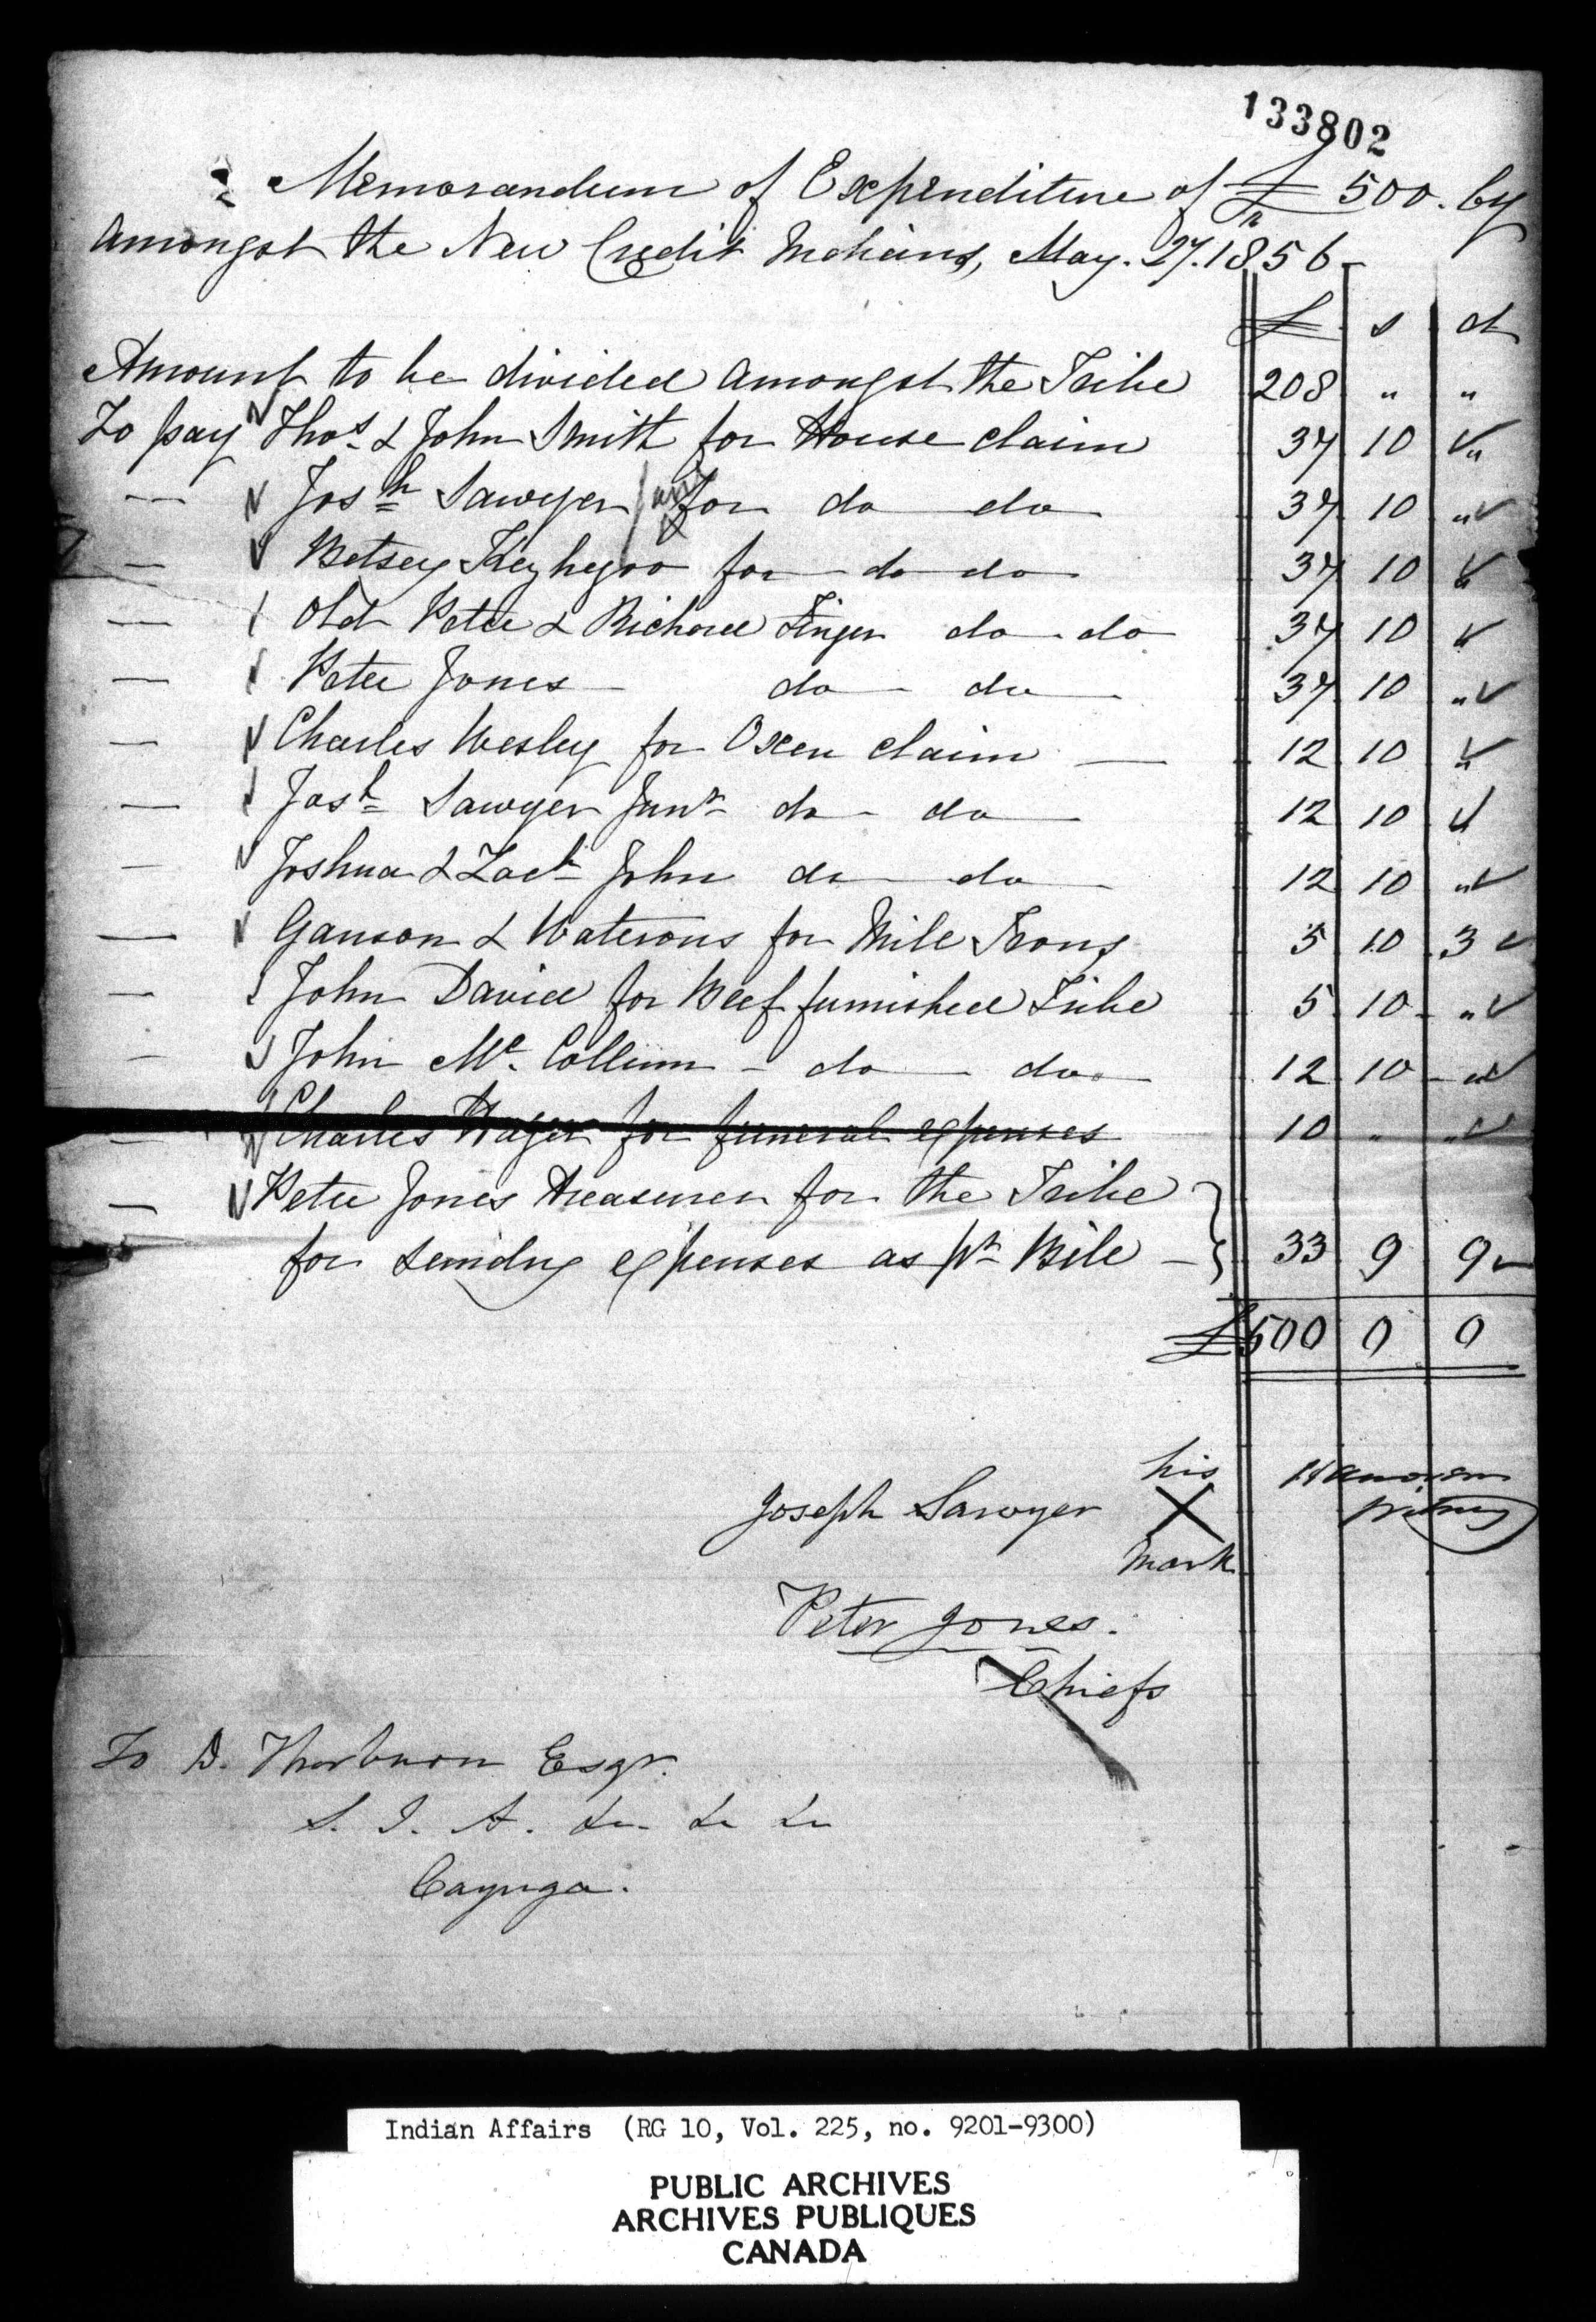 133802
Memorandum of Expenditure of £ 500. Cy
amongst the New Credit Indians, May. 27. 1856
£ s d
Amount to be divided amongst the Tribe 208 " "
To pay Thos. & John Smith for House claim 37 10 "
— Josh Sawyer for do do 37 10 "
— Betsey Kezhegoo for do do 37 10 "
— Old Peter & Richard Finger do do 37 10
— Peter Jones do do 37 10 "
— Charles Wesley for Oxen claim — 12 10 "
— Josh Sawyer Junr do do 12 10
— Joshua & Zach John do do 12 10 "
— Ganson & Waterous for Mill Irons 5 10 3
— John David for Beef furnished Tribe 5 10 "
— John Mc. Collum - do do 12 10 "
— Charles Wager for funeral expenses 10 " "
— Peter Jones Treasurer for the Tribe
for sending expenses as pr Bill — 33 9 9
£ 500 0 0
his
Joseph Sawyer X
mark
witness
Peter Jones.
Chiefs
To D. Thorburn Esqr.
S. I. A. &c &c &c
Cayuga.
Indian Affairs (RG 10, Vol. 225, no. 9201-9300)
PUBLIC ARCHIVES
ARCHIVES PUBLIQUES
CANADA